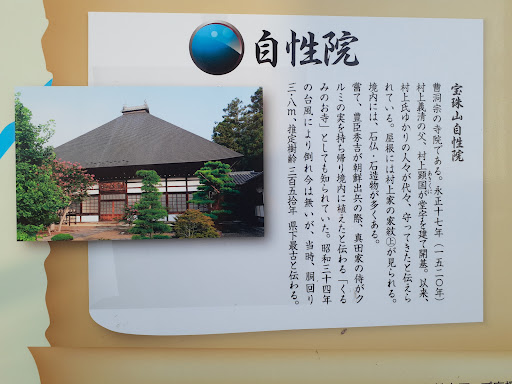 自性院
宝珠山自性院
曹洞宗の寺院である。永正十七年(一五二〇年)
村上義清の父、村上顕国が堂宇を建て開基。以来、
村上氏ゆかりの人々が代々、守ってきたと伝えら
れている。屋根には村上家の家紋㊤が見られる。
境内には、石仏・石造物が多くある。
嘗て、豊臣秀吉が朝鮮出兵の際、真田家の侍がク
ルミの実を持ち帰り境内に植えたと伝わる「くる
みのお寺」としても知られていた。昭和三十四年
の台風により倒れ今は無いが、当時、胴回り
三・八m、推定樹齢三百五拾年 県下最古と伝わる。